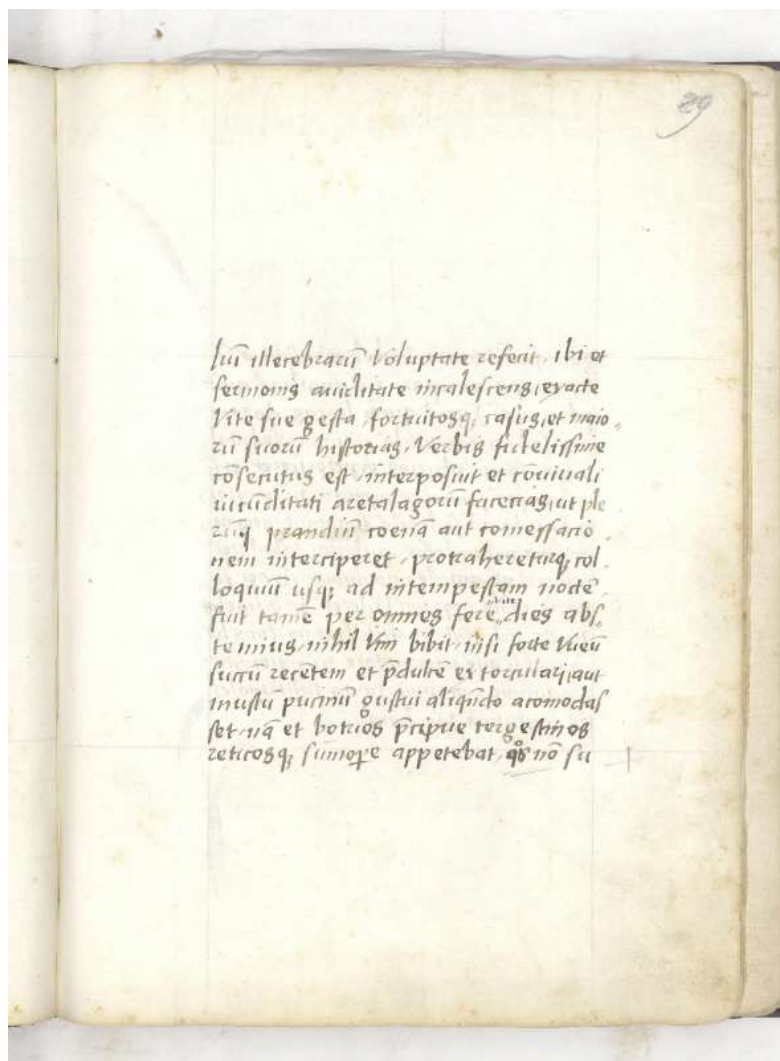 29
liũ illecebrarũ voluptate refecit, ibi et
sermonis auiditate incalescens, exacte
vite sue gesta, fortuitosq; casus, et maio„
rũ suorũ historias, verbis fidelissime
cõsecutus est, interposuit et cõuiuali
iucũditati aretalagorũ facecias, ut ple
rũq prandiũ coenã aut comessacio
nem interciperet, protrahereturq; col„
loquiũ usq; ad intempestam noctẽ,
fuit tamẽ per omnes fere dies abs„
temius, nihil vini bibit, nisi forte vueũ
succũ recẽtem et p̃dulcẽ ex torculari, aut
mustũ pucinũ gustui aliqñdo acomodas
set, nã et botrios p̃cipue tergestinos
reticosq; sũmoꝑe appetebat, qͦs nõ su